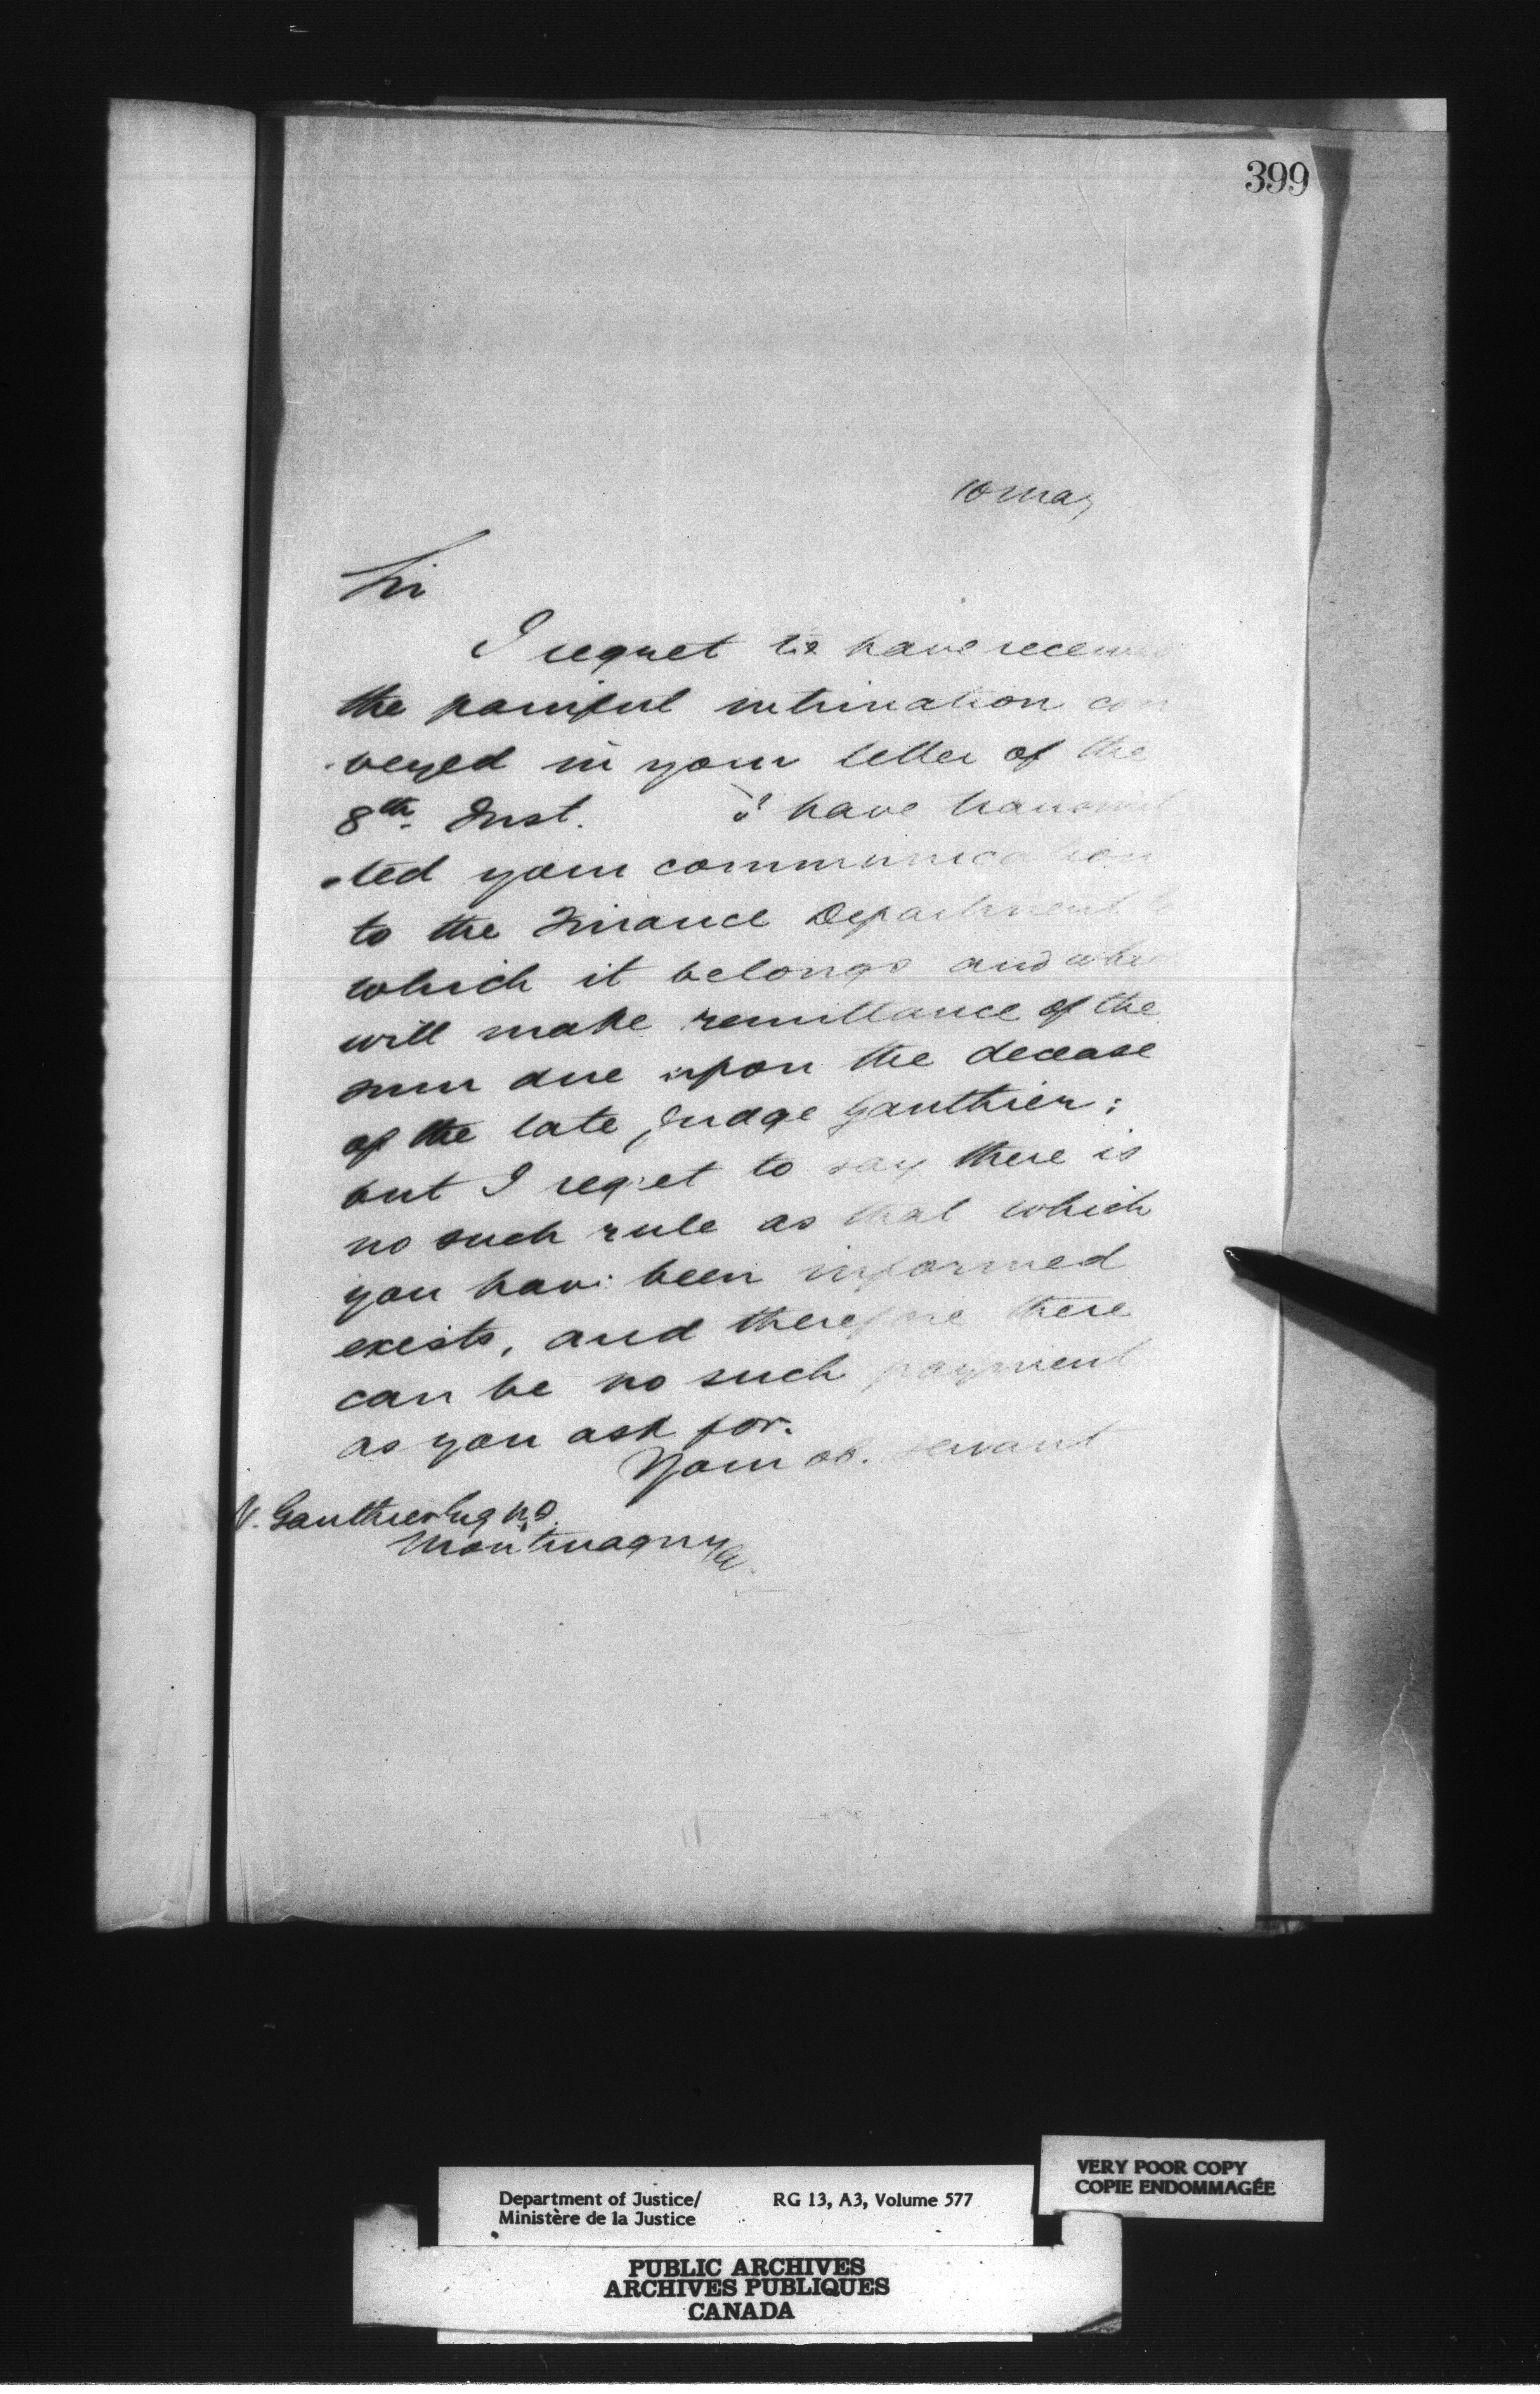 399
10 May
Sir
I regret to have received
the painful intimation con
veyed in your letter of the
8th Inst. I have transmit
ted your communication
to the Finance Department to
which it belongs and which
will make remittance of the
sum due upon the decease
of the late Judge Gauthier;
but I regret to say there is
no such rule as that which
you have been informed
exists, and therefore there
can be no such payment
as you ask for.
Your ob. servant
Gauthier Esq
Montmagny
VERY POOR COPY
COPIE ENDOMMAGÉE
Department of Justice/ RG 13, A3, Volume 577
Ministère de la Justice
PUBLIC ARCHIVES
ARCHIVES PUBLIQUES
CANADA